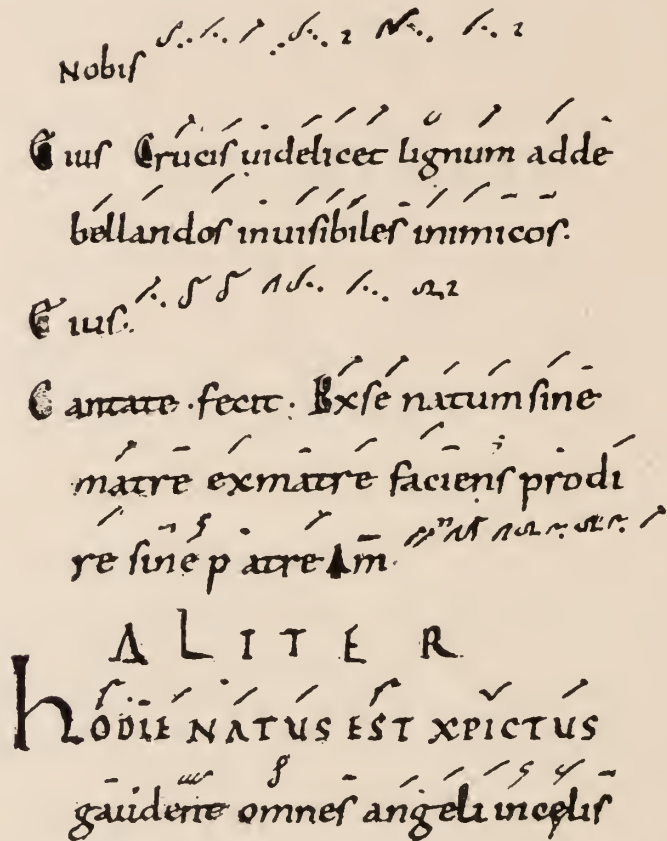 Nobis
Eius Crucis uidelicet lignum adde
bellandos inuisibiles inimicos.
Eius.
Cantate. fecit. Exse natum sine
matre exmatre faciens prodi
re sine patre Am̄.
ALITER
hODIE NATUS EST XPICTUS
gaudente omnes angeli incelis